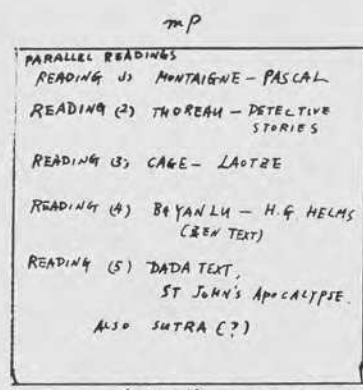 mP
PARALLEL READINGS
READING 1) MONTAIGNE - PASCAL
READING (2) THOREAU - DETECTIVE
STORIES
READING (3) CAGE - LAOTZE
READING (4) BAYAN LU - H.G. HELMS
(ZEN TEXT)
READING (5) DADA TEXT,
ST JOHN'S APOCALYPSE.
ALSO SUTRA (?)